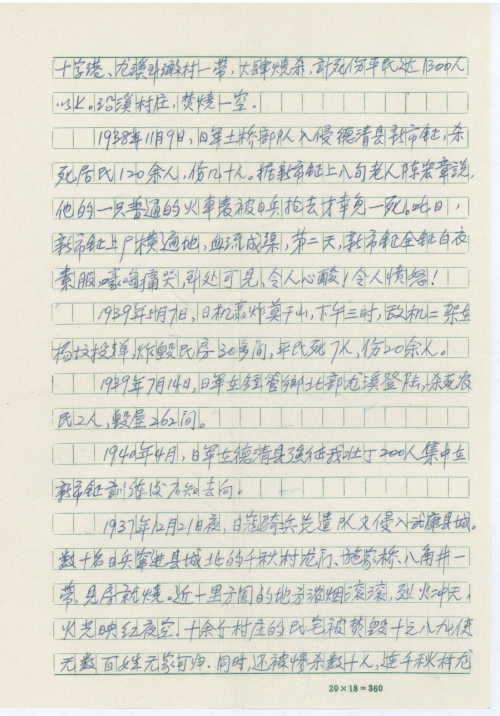 十字港、龙溪卦墩村一带,大肆烧杀,计死伤平民达1300人
以上。沿溪村庄,焚烧一空。
1938年11月9日,日军土桥部队入侵德清县新市镇,杀
死居民120余人,伤几十人。据新市镇上八旬老人陈宏章说,
他的一只普通的火车表被日兵抢去才幸免一死。此日,
新市镇上尸横遍地,血流成渠,第二天,新市镇全镇白衣
素服,嚎啕痛哭,到处可见,令人心酸!令人愤怒!
1939年5月7日,日机轰炸莫干山,下午三时,敌机二架在
杨坟投弹,炸毁民房30多间,平民死7人,伤20余人。
1939年7月14日,日军在钟管乡北部龙溪登陆,杀死农
民2人,毁屋262间。
1940年4月,日军在德清县强征我壮丁200人集中在
新市镇训练后不知去向。
1937年12月21日夜,日寇骑兵先遣队又侵入武康县城。
数十名日兵窜进县城北的千秋村龙行、施家桥、八角井一
带,见房就烧。近十里方圆的地方浓烟滚滚,烈火冲天,
火光映红夜空。十余个村庄的民宅被焚毁十之八九,使
无数百姓无家可归。同时,还被惨杀数十人,连千秋村龙
20×18=360